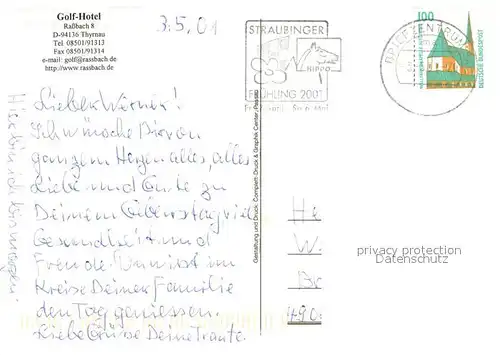 Golf-Hotel
Raßbach 8
D-94136 Thyrnau
Tel 08501/91313
Fax 08501/91314
e-mail: golf@rassbach.de
http://www.rassbach.de
3.5.01
STRAUBINGER
HIPPO
FRÜHLING 2001
BRIEFZENTRUM
100
DEUTSCHE BUNDESPOST
Lieber Werner!
Ich wünsche Dir von
ganzem Herzen alles, alles
Liebe und Gute zu
Deinem Geburtstag viel
Gesundheit und
Freude.
Kreise Deiner Familie
den Tag geniessen.
Liebe Grüsse Deine Traute.
Gestaltung und Druck: Complett-Druck & Graphic Center, Passau
He
W
490
privacy protection
Datenschutz